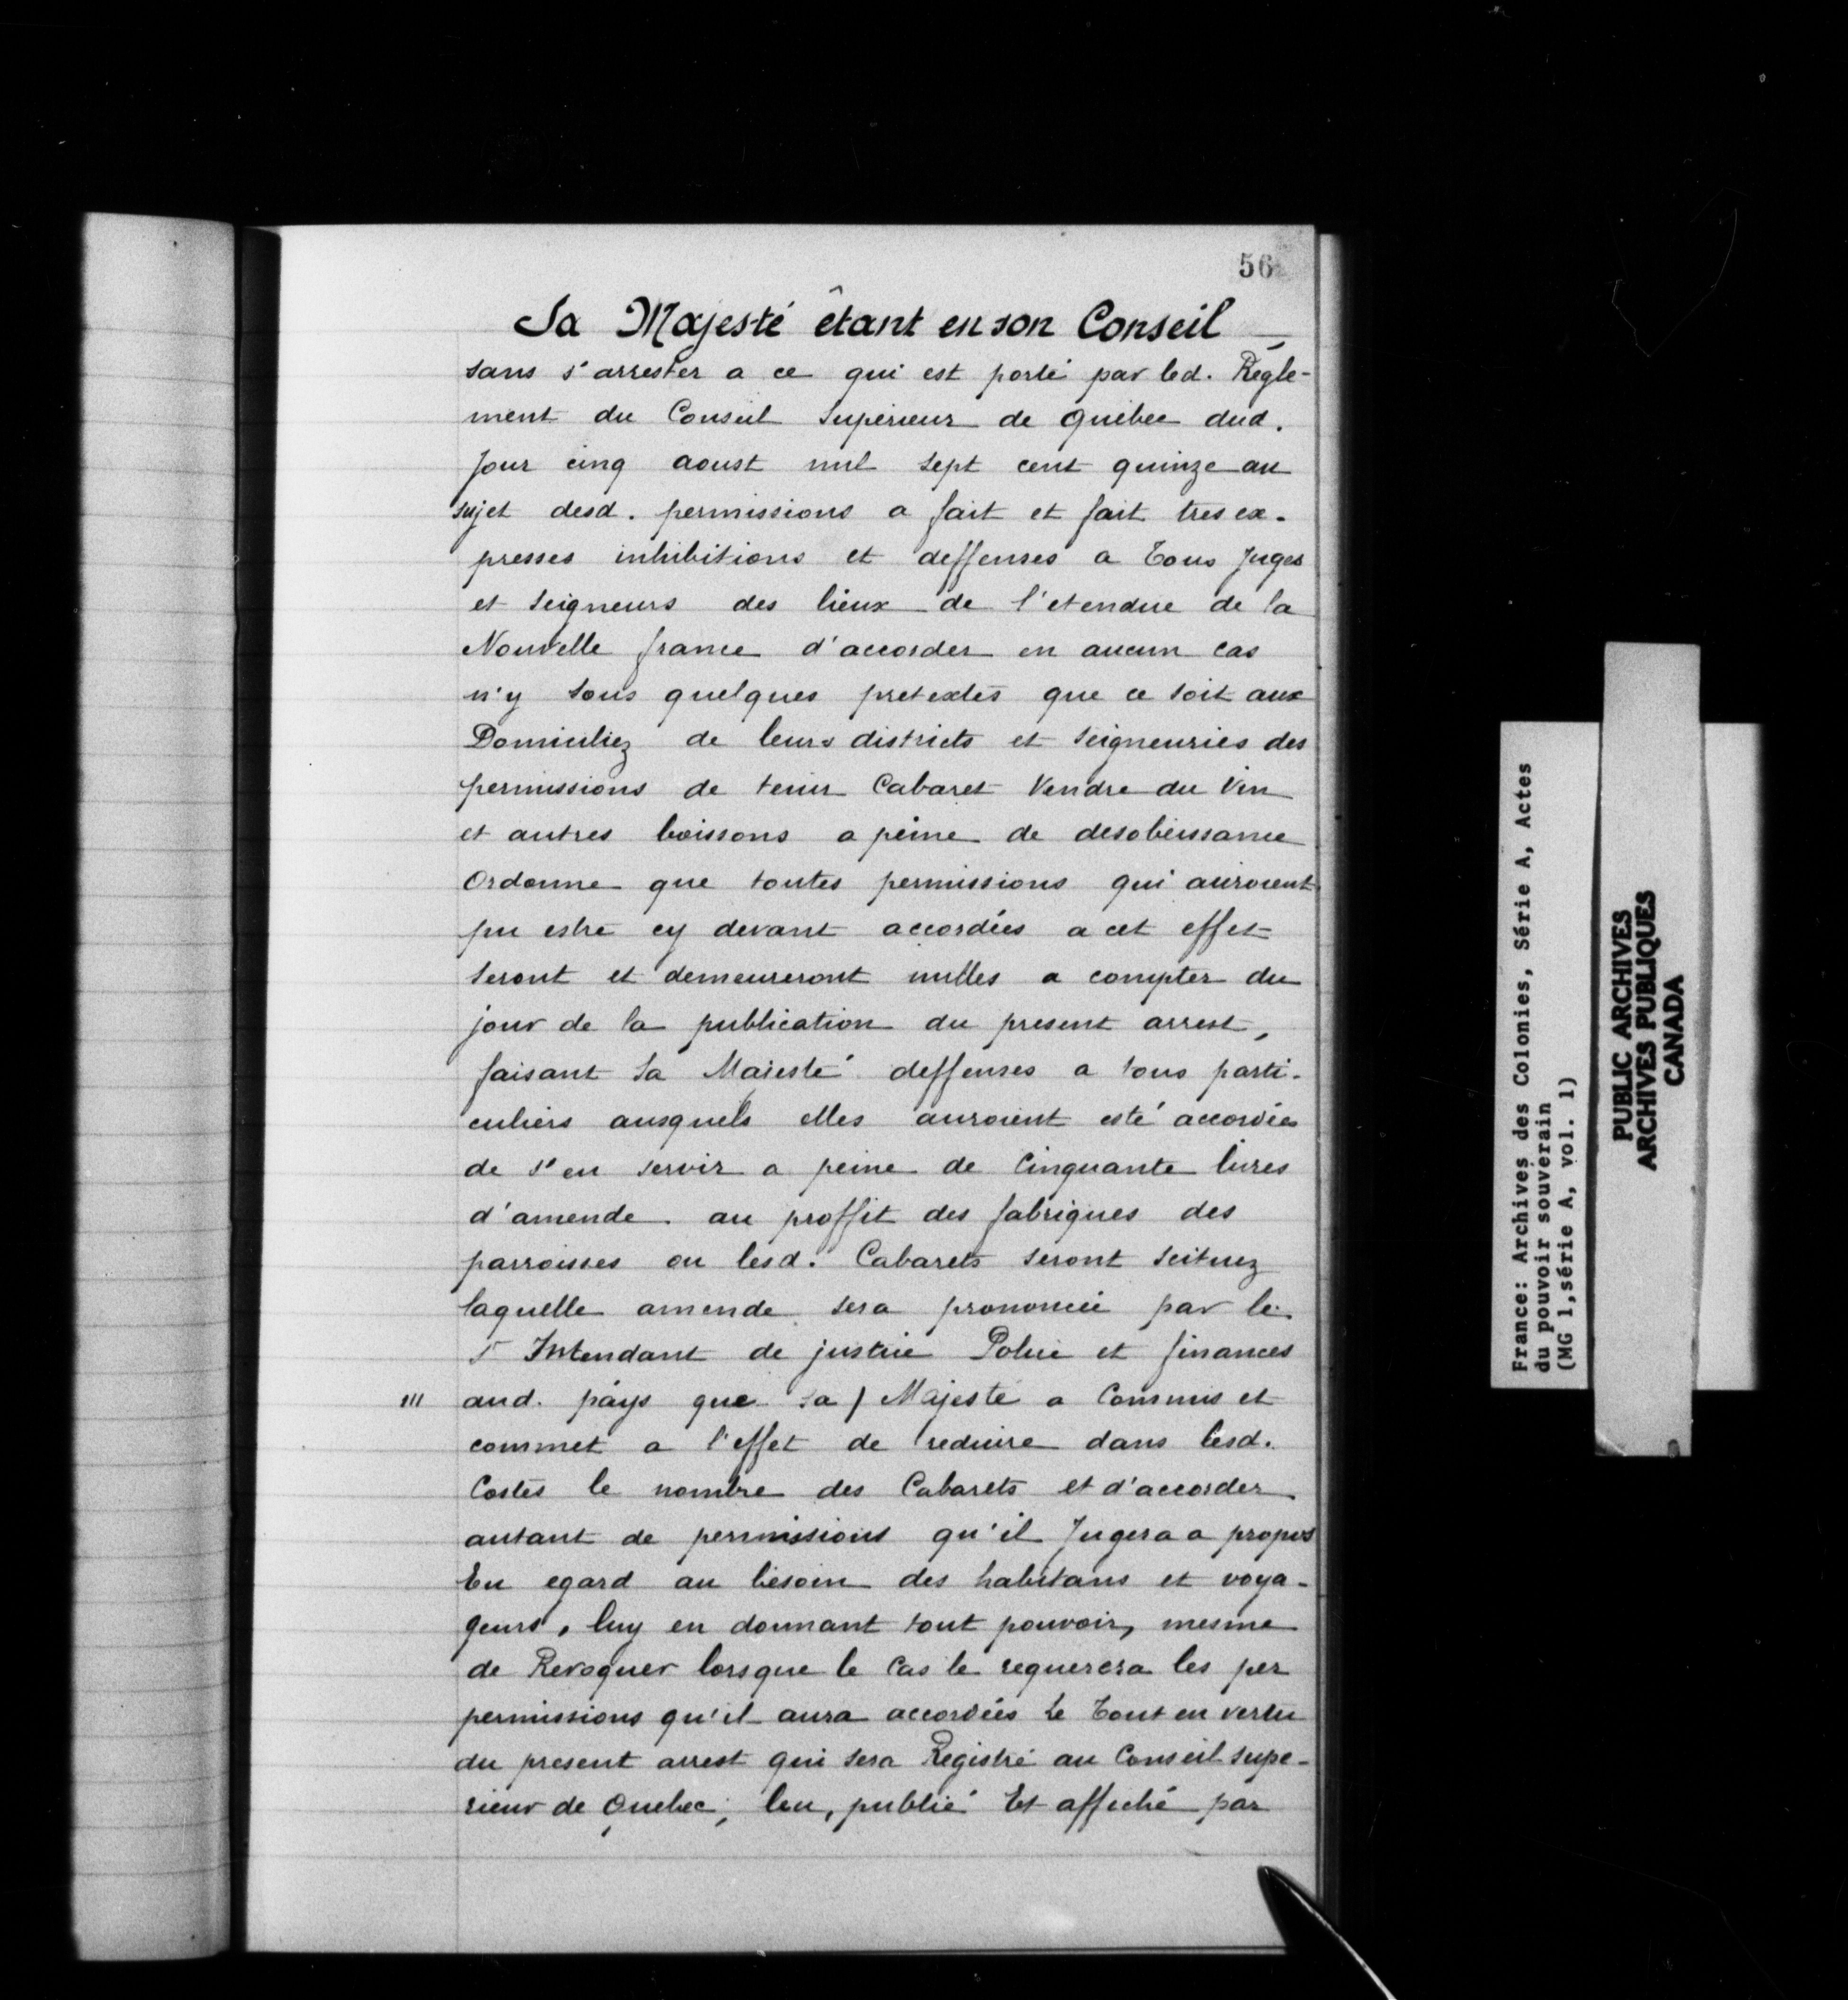 56
Sa Majesté êtant en son Conseil
sans s'arrester a ce qui est porté par led. Regle-
ment du Conseil Superieur de Quebec dud.
Jour cinq aoust mil sept cent quinze au
sujet desd. permissions a fait et fait tres ex-
presses inhibitions et deffenses a Tous Juges
et Seigneurs des lieux de l'etendue de la
Nouvelle france d'accorder en aucun cas
n'y sous quelques pretextes que ce soit aux
Domiciliez de leurs districts et Seigneuries des
permissions de tenir Cabaret Vendre du Vin
et autres boissons a peine de desobeissance
Ordonne que toutes permissions qui auroient
pu estre cy devant accordées a cet effet
seront et demeureront nulles a compter du
jour de la publication du present arrest,
faisant Sa Majesté deffenses a tous parti-
culiers ausquels elles auroient esté accordées
de s'en servir a peine de Cinquante livres
d'amende. au proffit des fabriques des
parroisses ou lesd. Cabarets seront scituez
laquelle amende sera prononcée par le
S Intendant de justice Police et finances
111 aud. pays que sa / Majesté a Commis et
commet a l'effet de reduire dans lesd.
Costes le nombre des Cabarets et d'accorder
autant de permissions qu'il Jugera a propos
Eu egard au besoin des habitans et voya-
geurs, luy en donnant tout pouvoir, mesme
de Revoquer lorsque le Cas le requerera les per
permissions qu'il aura accordées Le Tout en vertu
du present arrest qui sera Registré au Conseil supe-
rieur de Quebec, leu, publié Et affiché par
France: Archives des Colonies, Série A, Actes
du pouvoir souverain
(MG 1,série A, vol. 1)
PUBLIC ARCHIVES
ARCHIVES PUBLIQUES
CANADA